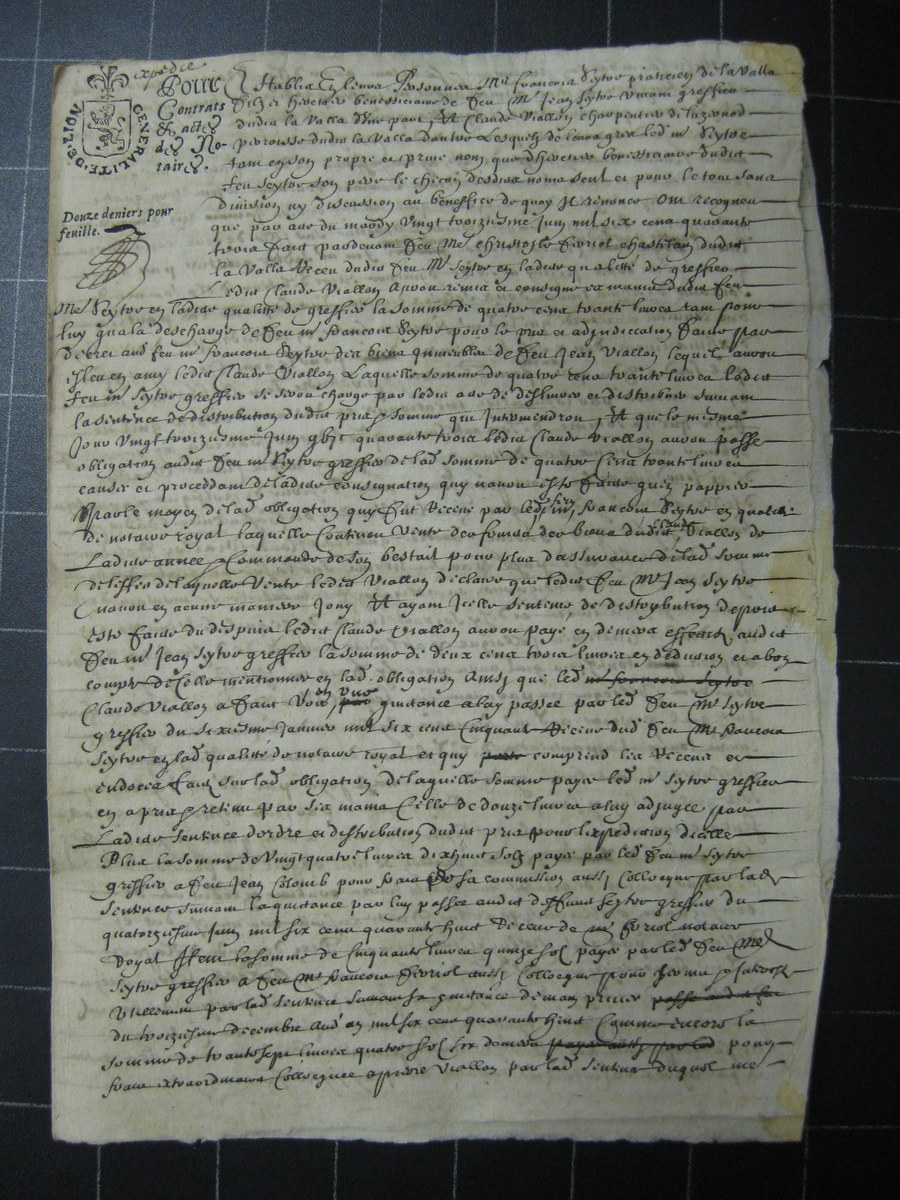 expedie
GENERALITE DE LION
Pour
Contrats
& actes
des No-
taires.
Douze deniers pour
feuille.
Establis en leurs personnes Me francois Seytre praticien de la Valla
filz et heretier beneficiaire de feu Me Jean Seytre vivant greffier
dudit la Valla d'une part, Et Claude Viallon charpentier de
parroisse dudit la Valla d'autre Lesquelz de leurs grez led Me Seytre
tam en son propre et prive nom que d'heretier beneficiaire dudit
feu Seytre son pere le chacun desdits noms seul et pour le tout sans
division ny discussion au beneffice de quoy Il renonce Ont recogneu
que par acte du mardy Vingt troiziesme Juin mil six cens quarante
trois faict pardevant feu Me christofle fivriol chastelain dudit
la Valla Receu dudit feu Me Seytre en ladite qualitté de greffier
Ledit Claude Viallon auroit remis et consigne es mains dudit feu
Me Seytre en ladite qualitte de greffier la somme de quatre cens trante livres tam pour
luy qua la descharge de feu Me francois Seytre pour le pris et adjudiccation faicte par
decret aud feu Me francois Seytre des biens immeubles de feu Jean Viallon lequel auroit
esleu en amy ledit Claude Viallon Laquelle somme de quatre cens trante livres Ledit
feu Me Seytre greffier se seroit charge par ledit acte de deslivrer et distribuer suivant
la sentence de distribution dudit pris somme qui Interviendroit, Et que le mesme
Jour Vingt troiziesme Juin quarante trois Ledit Claude Viallon auroit passe
obligation audit feu Me Seytre greffier de lad somme de quatre Cens trante livres
causee et proceddant de ladite consignation quy navoit este faicte quen pappier
Par le moyen de lad obligation quy fut Receue par led Me francois Seytre en qualite
de notaire royal laquelle Contenoit Vente des fonds des biens dudit Claude Viallon de
Ladite annee Commande de son bestail pour plus dassurance de lad somme
de leffet de laquelle Vente ledit Viallon declare que ledit feu Me Jean Seytre
navoit en aucune maniere Jouy Et ayant Icelle sentence de distribution depuis
este faicte du despuis ledit Claude Viallon auroit paye en deniers effectifs audit
feu Me Jean Seytre greffier la somme de deux cens trois livres en deduction et a bon
compte de Celle mentionnee en lad obligation Ainsy que led Me francois Seytre
Claude Viallon a faict Voir en une par quictance a luy passee par led feu Me Seytre
greffier du sixiesme Janvier mil six cens Cinquante Receue dud feu Me francois
Seytre en lad qualitte de notaire royal et quy porte comprend les Receus et
endorces faictz sur lad obligation de laquelle somme payee led Me Seytre greffier
en a pris et retenu par ses mains Celle de douze livres a luy adjugee par
Ladite sentence d'ordre et distribution dudit pris pour lexpedition dicelle
Plus la somme de Vingt quatre livres dixhuict solz payee par led feu Me Seytre
greffier a feu Jean Colomb pour frais de sa commission aussy Collocque par lad
sentence suivant la quictance par luy passee audit deffunct Seytre greffier du
quatorziesme Juin mil six cens quarante huict Receue de Me fivriol notaire
Royal Item la somme de Cinquante livres quinze sol payee par led feu Me
Seytre greffier a feu Me francois fivriol aussy Collocque pour
par lad sentence suivant sa quictance de main privee passe audit feu
du troiziesme decembre aud an mil six cens quarante huict Comme encore la
somme de trante sept livres quatre sol six deniers payee aussy par led pour
frais extraordinaires Collocquee a pierre Viallon par lad sentence duquel Me